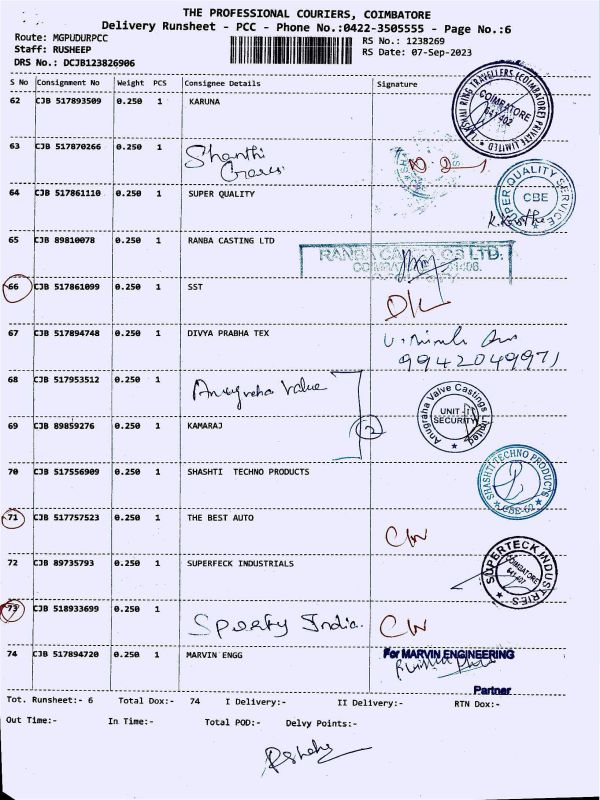 THE PROFESSIONAL COURIERS, COIMBATORE
Delivery Runsheet - PCC - Phone No.:0422-3505555 - Page No.:6
Route: MGPUDURPCC RS No.: 1238269
Staff: RUSHEEP RS Date: 07-Sep-2023
DRS No.: DCJB123826906
S No Consignment No Weight PCS Consignee Details Signature
62 CJB 517893509 0.250 1 KARUNA
COIMBATORE
641 402
63 CJB 517870266 0.250 1 Shanthi
64 CJB 517861110 0.250 1 SUPER QUALITY
SUPER QUALITY SERVICE
CBE
65 CJB 89810078 0.250 1 RANBA CASTING LTD
66 CJB 517861099 0.250 1 SST D/L
67 CJB 517894748 0.250 1 DIVYA PRABHA TEX
9942049971
68 CJB 517953512 0.250 1 Anugraha Value
Anugraha Valve Castings Limited
UNIT-II
SECURITY
69 CJB 89859276 0.250 1 KAMARAJ 2
70 CJB 517556909 0.250 1 SHASHTI TECHNO PRODUCTS
SHASHTI TECHNO PRODUCTS
71 CJB 517757523 0.250 1 THE BEST AUTO CW
72 CJB 89735793 0.250 1 SUPERFECK INDUSTRIALS
SUPERTECK INDUSTRIES
COIMBATORE
73 CJB 518933699 0.250 1 India. CW
74 CJB 517894720 0.250 1 MARVIN ENGG
For MARVIN ENGINEERING
Partner
Tot. Runsheet:- 6 Total Dox:- 74 I Delivery:- II Delivery:- RTN Dox:-
Out Time:- In Time:- Total POD:- Delvy Points:-